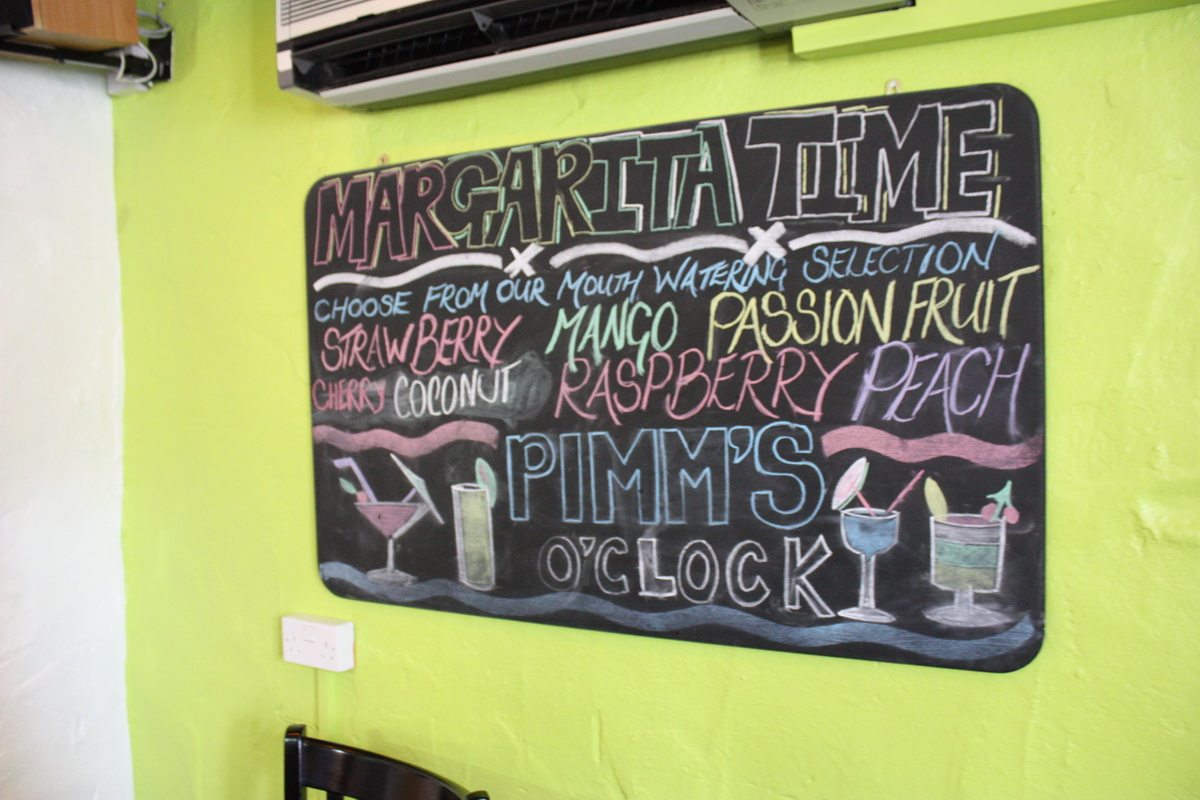 MARGARITA TIME
CHOOSE FROM OUR MOUTH WATERING SELECTION
STRAWBERRY MANGO PASSION FRUIT
CHERRY COCONUT RASPBERRY PEACH
PIMM'S
O'CLOCK